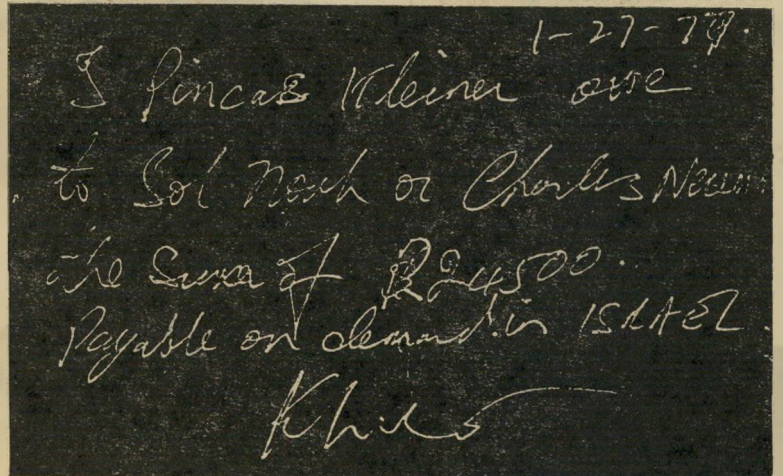 1-27-77.
I Pincas Kleiner owe
to Sol Noah or Charles
the Sum of R24500.
Payable on demand in ISRAEL.